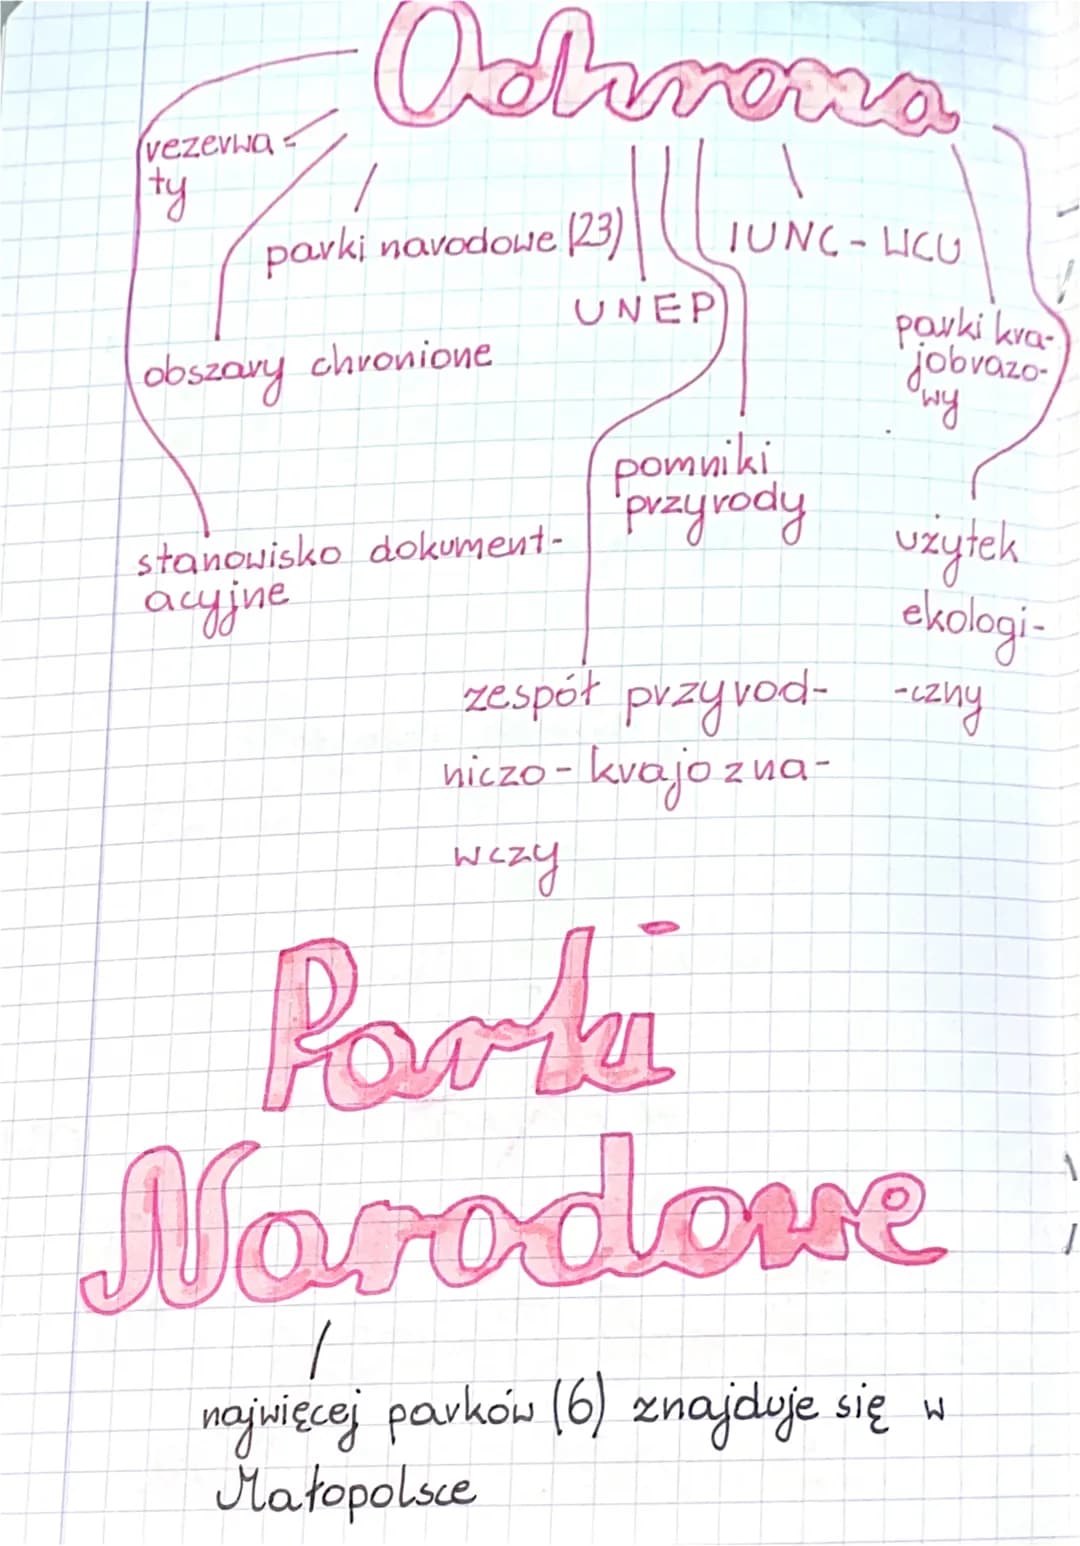 Ochrona
rezerwa
ty
parki narodowe (23)
IUNC - UCU
UNEP
parki kra-
jobrazo-
wy
obszary chronione
pomniki
przyrody
stanowisko dokument-
acyjne
użytek
ekologi-
-czny
zespół przyrod-
niczo - krajozna-
wczy
Parki
Narodowe
najwięcej parków (6) znajduje się w
Małopolsce